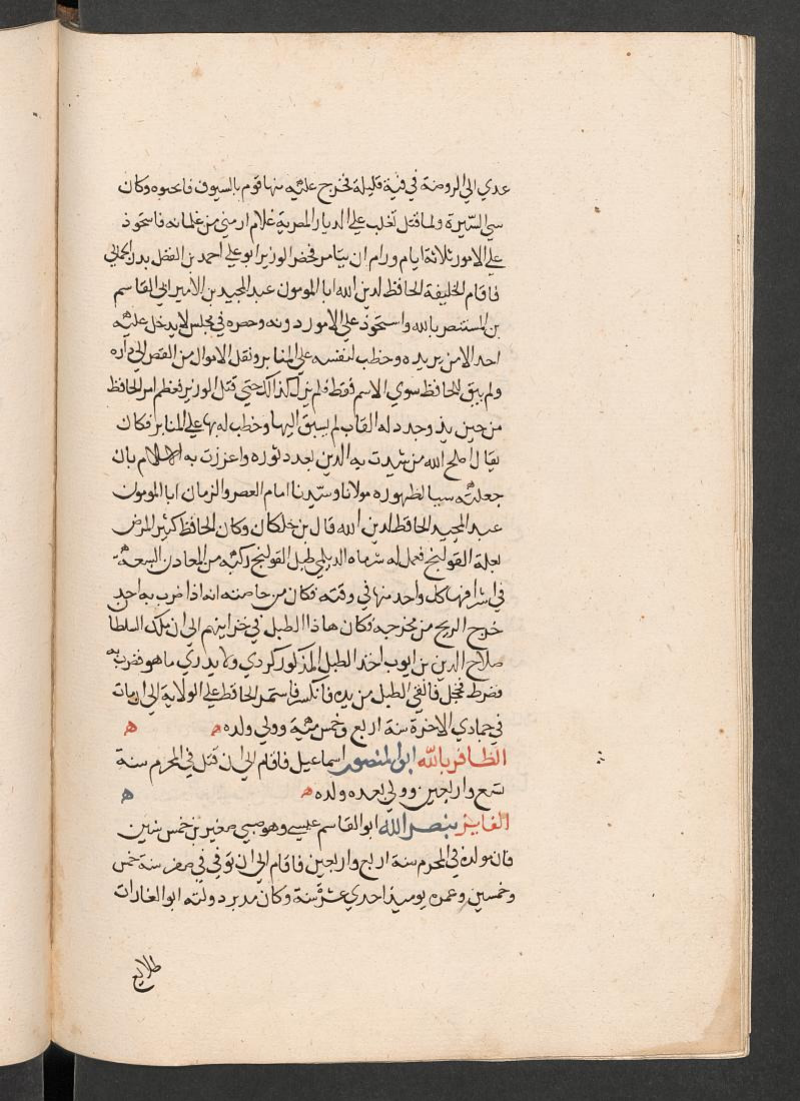 عدي الي الروضة في فية قليلة فخرج عليه منها قوم بالسيوف فاثخنوه وكان
سي السيرة ولما قتل تغلب علي الديار المصرية غلام ارمني من غلمانه فاستحوذ
علي الامور ثلاثة ايام ورام ان يتامر فحضر الوزير ابو علي احمد بن الفضل بدر الجمالي
فاقام الخليفة الحافظ لدين الله ابا المومون عبد المجيد بن الامير ابي القاسم
بن المستنصر بالله واستحوذ علي الامور دونه وحصره في مجلس لا يدخل عليه
احد الا من يريده وخطب لنفسه علي المنابر ونقل الاموال من القصر الي داره
ولم يبق للحافظ سوي الاسم فقط فلم يزل كذالك حتي قتل الوزير فعظم امر الحافظ
من حين يذ وجدد له القاب لم يسبق اليها وخطب له بها علي المنابر فكان
يقال اصلح الله من شيدت به الدين بعد دثوره واعززت به الاسلام بان
جعلته سببا لظهوره مولانا وسيدنا امام العصر والزمان ابا المومون
عبد المجيد الحافظ لدين الله قال بن خلكان وكان الحافظ كثير المرض
بعلة القولنج فعمل له شرماه الديلمي طبل القولنج ركبه من المعادن السبعة
في اشرافها كل واحد منها في وقته فكان من خاصته انه اذا ضرب به احد
خرج الريح من مخرجه فكان هاذا الطبل في خزاينهم الي ان ملك السلطا
صلاح الدين بن ايوب اخذ الطبل المذكور كردي ولا يدري ما هو فضرب به
فضرط فخجل فالقي الطبل من يده فانكسر فاستمر الحافظ علي الولاية الي ان مات
في جمادي الاخرة سنة اربع وخمس مئة وولي ولده ه ه
الظافر بالله ابو المنصور اسماعيل فاقام الي ان قتل في المحرم سنة
تسع واربعين وولي بعده ولده ه ه
الفايز بنصر الله ابو القاسم عيسي وهو صبي صغير بن خمس سنين
فان مولده في المحرم سنة اربع واربعين فاقام الي ان توفي في صفر سنة خمس
وخمسين وعمره يوميذ احدي عشرة سنة وكان مدبر دولته ابو الغارات
طلايع